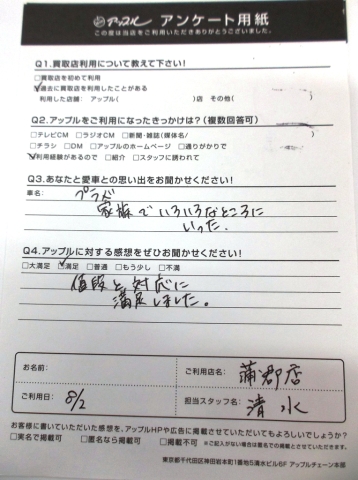 アップル アンケート用紙
この度は当店をご利用いただきありがとうございました。
Q1.買取店利用について教えて下さい!
□買取店を初めて利用
□過去に買取店を利用したことがある
利用した店舗: アップル( )店 その他( )
Q2.アップルをご利用になったきっかけは?(複数回答可)
□テレビCM □ラジオCM □新聞・雑誌(媒体名/ )
□チラシ □DM □アップルのホームページ □通りがかりで
□利用経験があるので □紹介 □スタッフに誘われて
Q3.あなたと愛車との思い出をお聞かせください!
車名: プラド
家族でいろいろなところに
いった。
Q4.アップルに対する感想をぜひお聞かせください!
□大満足 □満足 □普通 □もう少し □不満
値段と対応に
満足しました。
お名前:
ご利用店名: 蒲郡店
ご利用日: 8/2
担当スタッフ名: 清水
お客様に書いていただいた感想を、アップルHPや広告に掲載させていただいてもよろしいでしょうか?
□実名で掲載可 □匿名なら掲載可 □掲載不可 ※ご記入がない場合は匿名での掲載とさせていただきます。
東京都千代田区神田岩本町1番地5清水ビル6F アップルチェーン本部